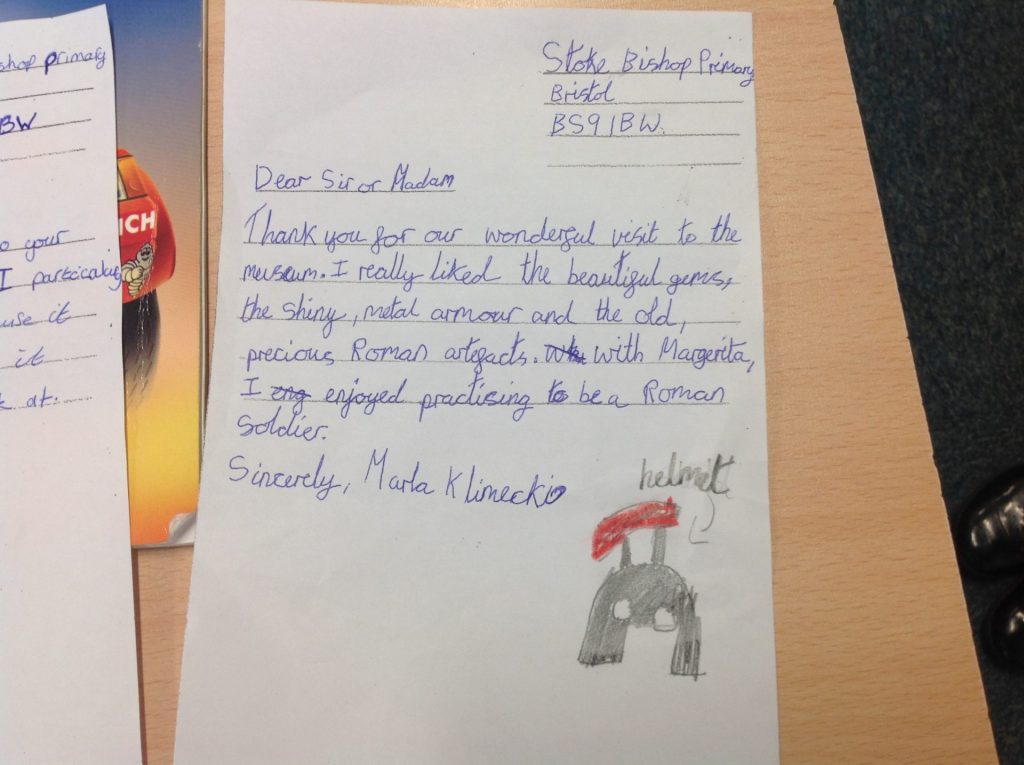 shop primary
BW
o your
I particularly
use it
it
k at.
ICH
Stoke Bishop Primary
Bristol
BS9 1BW.
Dear Sir or Madam
Thank you for our wonderful visit to the
museum. I really liked the beautiful gems,
the shiny, metal armour and the old,
precious Roman artefacts. with Margerita,
I enjoyed practising to be a Roman
Soldier.
Sincerely, Marla Klimecki
helmet